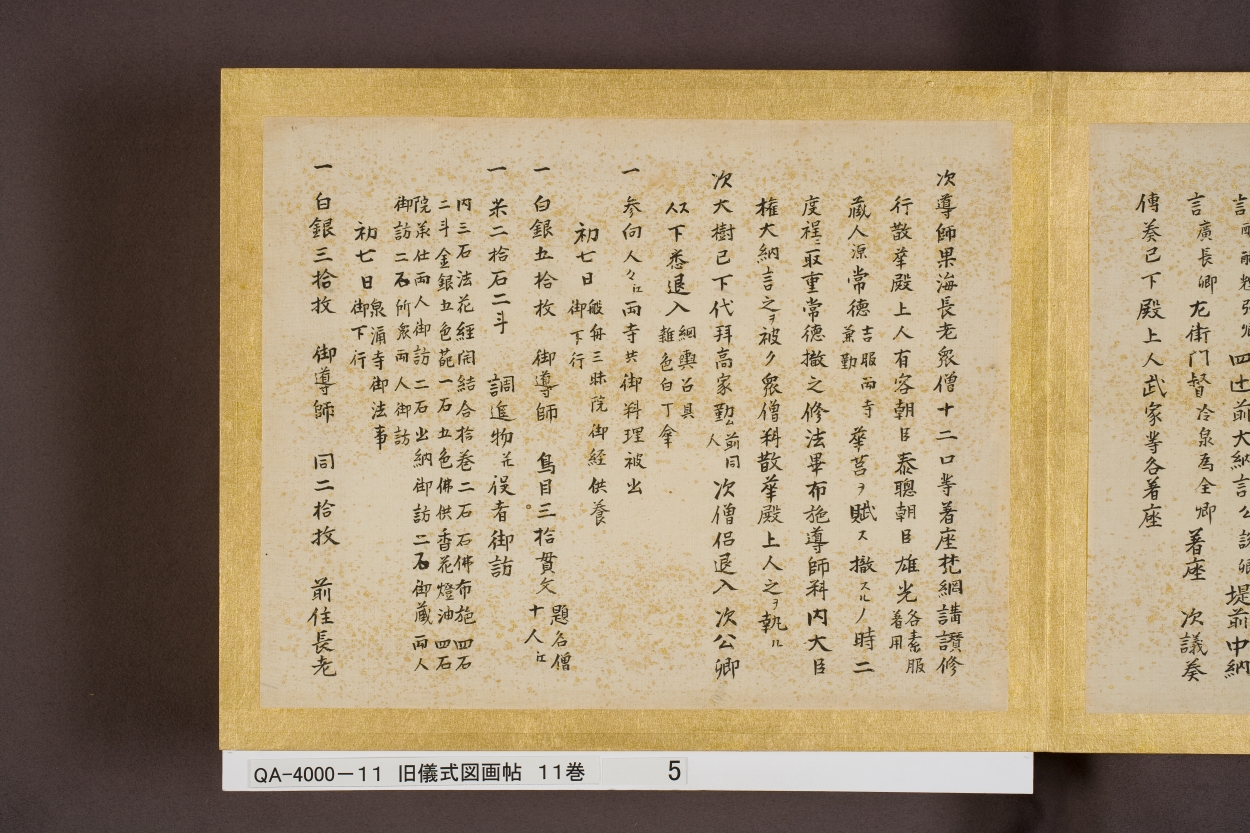 言
四辻前大納言公説卿 堤前中納
言廣長卿 左衛門督冷泉為全卿 着座 次議奏
傳奏已下殿上人武家等各着座
次導師果海長老衆僧十二口等着座梵網講讃修
行散華殿上人有容朝臣泰聰朝臣雄光各素服着用
蔵人源常德吉服両寺兼勤 華筥ヲ賦ス撤スルノ時二
度程ニ取重常德撤之修法畢布施導師料内大臣
権大納言之ヲ被ク衆僧料散華殿上人之ヲ執ル
次大樹已下代拜高家勤ム前同人 次僧侶退入 次公卿
以下悉退入網輿召具雜色白丁傘
人
一 参向人々江両寺共御料理被出
初七日 般舟三昧院御経供養
御下行
一 白銀五拾枚 御導師 鳥目三拾貫文 題名僧十人江
一 米二拾石二斗 調進物并役者御訪
内三石法花経開結合拾巻二石石佛布施四石
二斗金銀五色葩一石五色佛供香花燈油四石
院承仕両人御訪二石出納御訪二石御蔵両人
御訪二石所衆両人御訪
初七日 泉涌寺御法事
御下行
一 白銀三拾枚 御導師 同二拾枚 前住長老
QA-4000-11 旧儀式図画帖 11巻 5